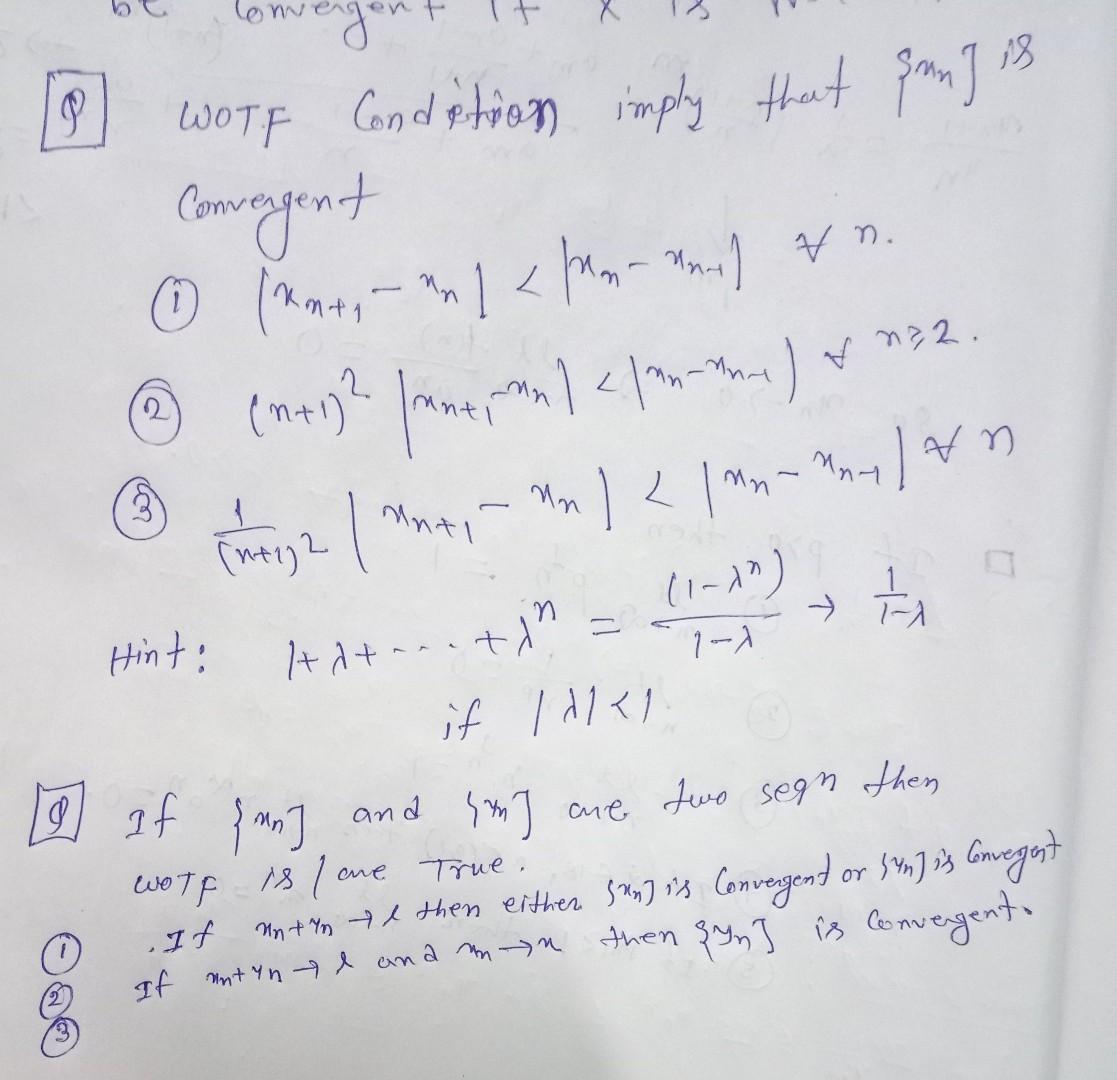 be Convergent if x is
Q WOTF Condition imply that {xn} is
Convergent
① |xn+1 - xn| < |xn - xn-1| ∀ n.
② (n+1)² |xn+1 - xn| < |xn - xn-1| ∀ n≥2.
③ 1/(n+1)² |xn+1 - xn| < |xn - xn-1| ∀ n
Hint: 1+λ+----+λⁿ = (1-λⁿ)/1-λ → 1/1-λ
if |λ|<1
Q If {xn} and {yn} are two seqn then
WOTF is/are True.
① .If xn+yn → l then either {xn} is Convergent or {yn} is Convegent
② If xn+yn → l and xn → x then {yn} is Convergent.
③